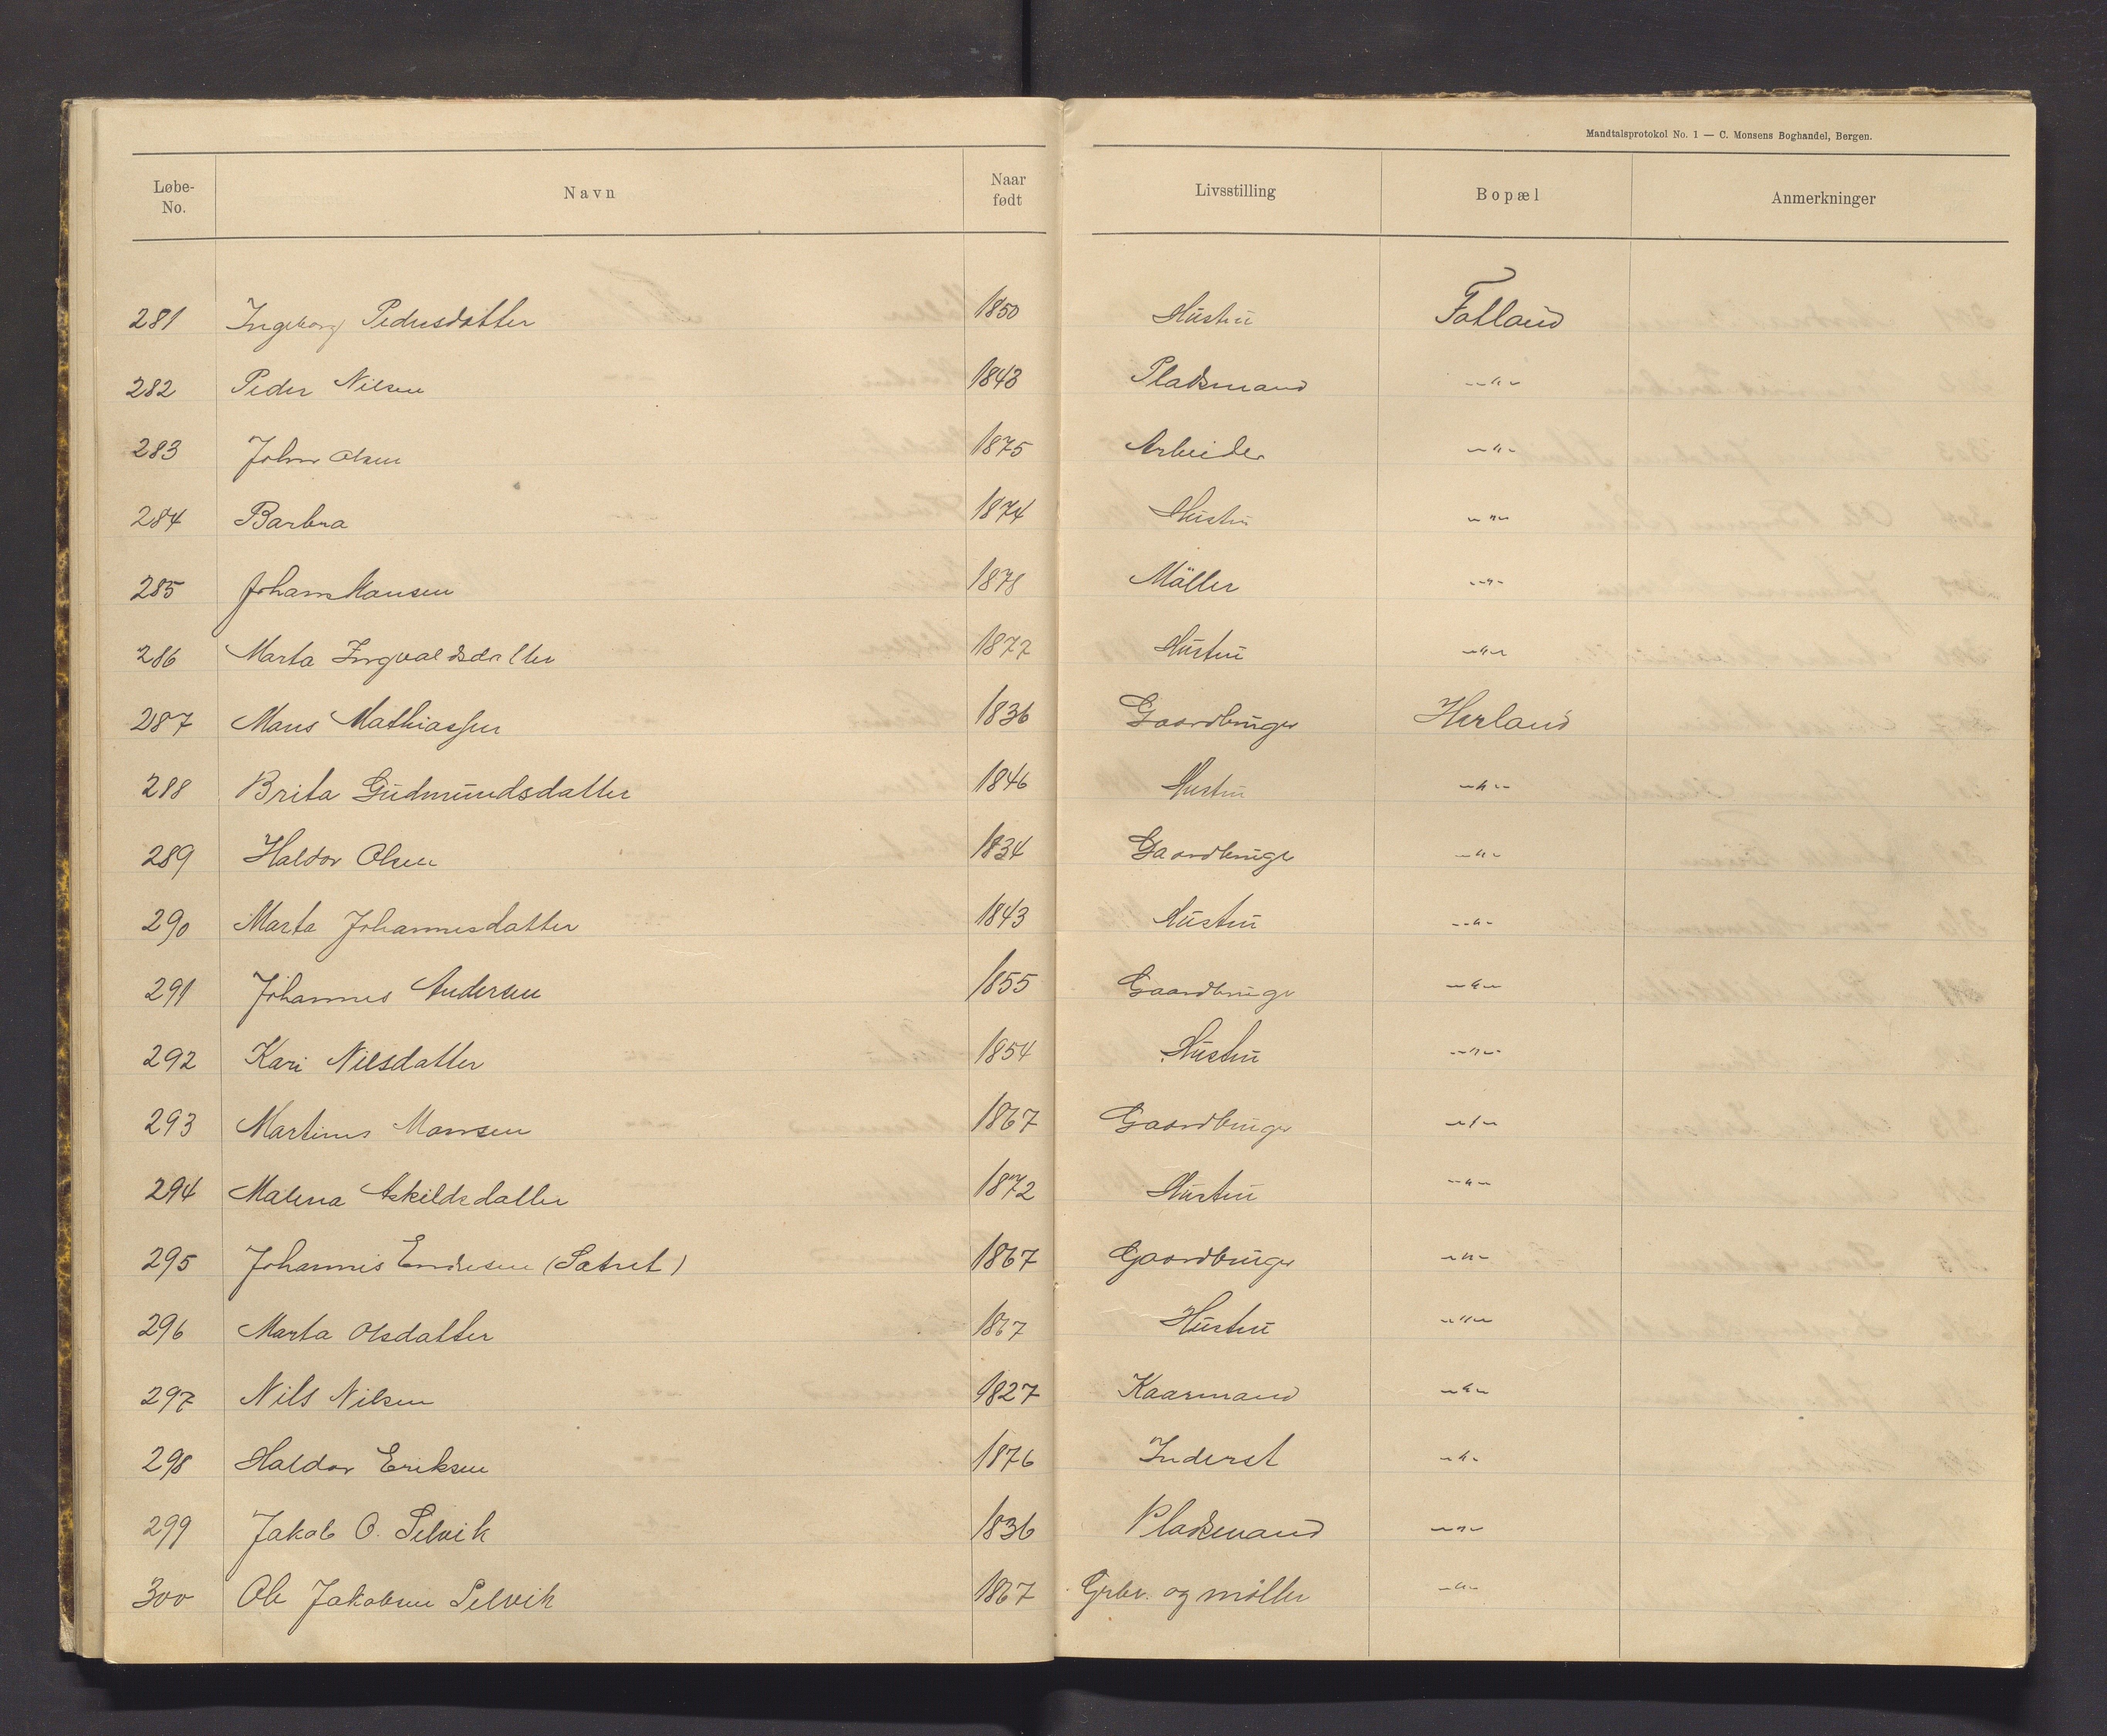 Mandtalsprotokol No. 1 — C. Monsens Boghandel, Bergen.
Løbe-No. Navn Naar født Livsstilling Bopæl Anmerkninger
281 Ingeborg Pedersdatter 1850 Hustru Fatland
282 Peder Nilsen 1843 Pladsmand -"-
283 Johan Olsen 1875 Arbeider -"-
284 Barbra 1874 Hustru -"-
285 Johan Hansen 1878 Møller -"-
286 Marta Ingvaldsdatter 1877 Hustru -"-
287 Mons Mathiassen 1836 Gaardbruger Herland
288 Brita Gudmundsdatter 1846 Hustru -"-
289 Haldor Olsen 1834 Gaardbruger -"-
290 Marta Johannesdatter 1843 Hustru -"-
291 Johannes Andersen 1855 Gaardbruger -"-
292 Kari Nilsdatter 1854 Hustru -"-
293 Martinus Monsen 1867 Gaardbruger -"-
294 Malena Askildsdatter 1872 Hustru -"-
295 Johannes Endresen (Sætret) 1867 Gaardbruger -"-
296 Marta Olsdatter 1867 Hustru -"-
297 Nils Nilsen 1827 Kaarmand -"-
298 Haldor Eriksen 1876 Inderst -"-
299 Jakob O. Selvik 1836 Pladsmand -"-
300 Ole Jakobsen Selvik 1867 Grbr. og møller -"-